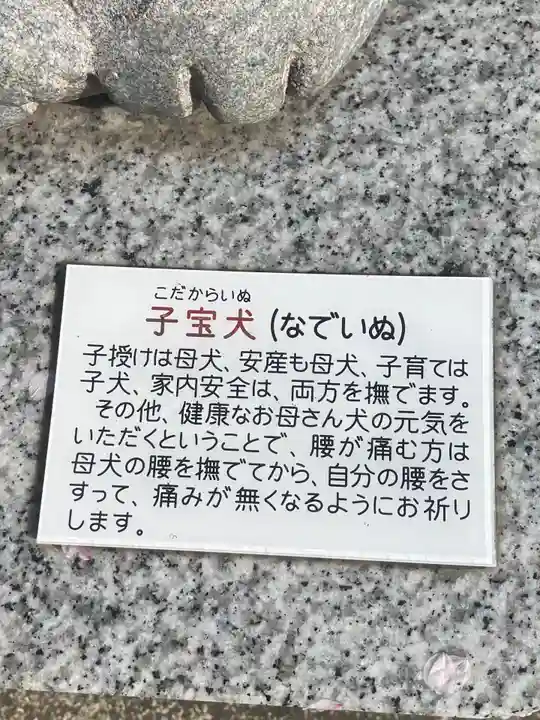 こだからいぬ
子宝犬(なでいぬ)
子授けは母犬、安産も母犬、子育ては
子犬、家内安全は、両方を撫でます。
その他、健康なお母さん犬の元気を
いただくということで、腰が痛む方は
母犬の腰を撫でてから、自分の腰をさ
すって、痛みが無くなるようにお祈り
します。